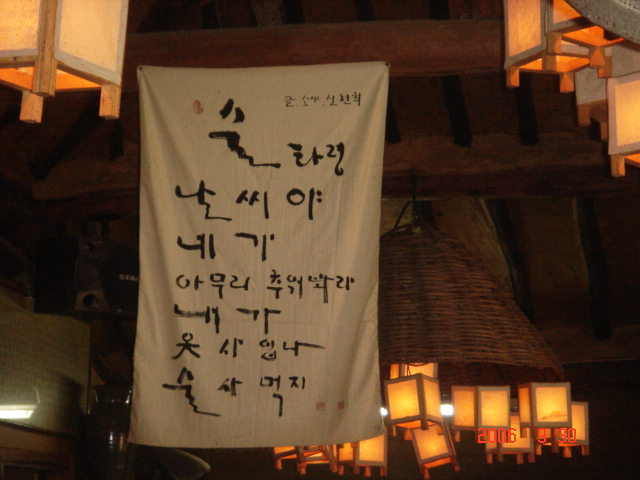 글. 소야. 신천희
술 타령
날씨야
네가
아무리 추워봐라
내가
옷 사 입나
술 사 먹지
STA
2006 9 30